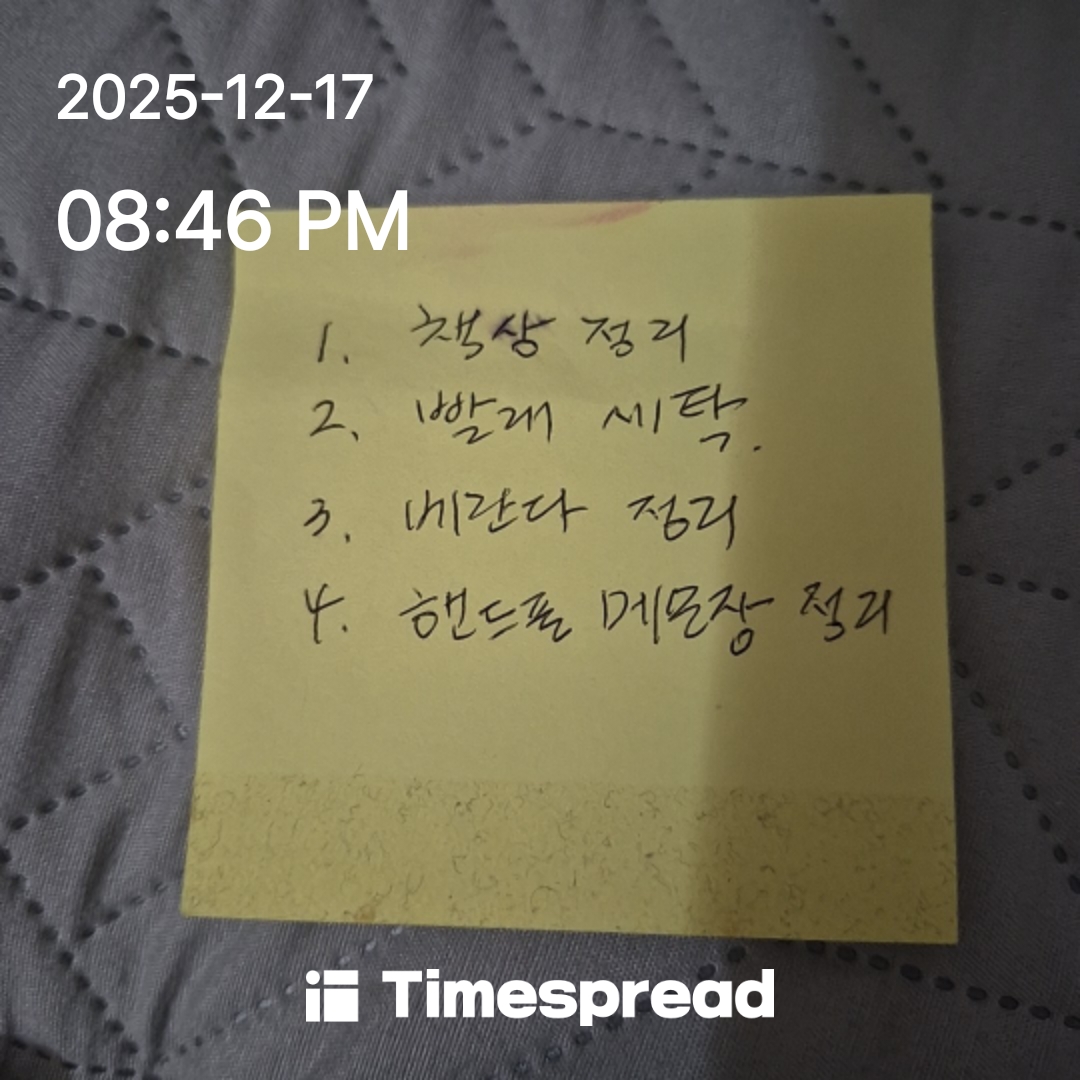 2025-12-17
08:46 PM
1. 책상 정리
2. 빨래 세탁.
3. 베란다 정리
4. 핸드폰 메모장 정리
Timespread